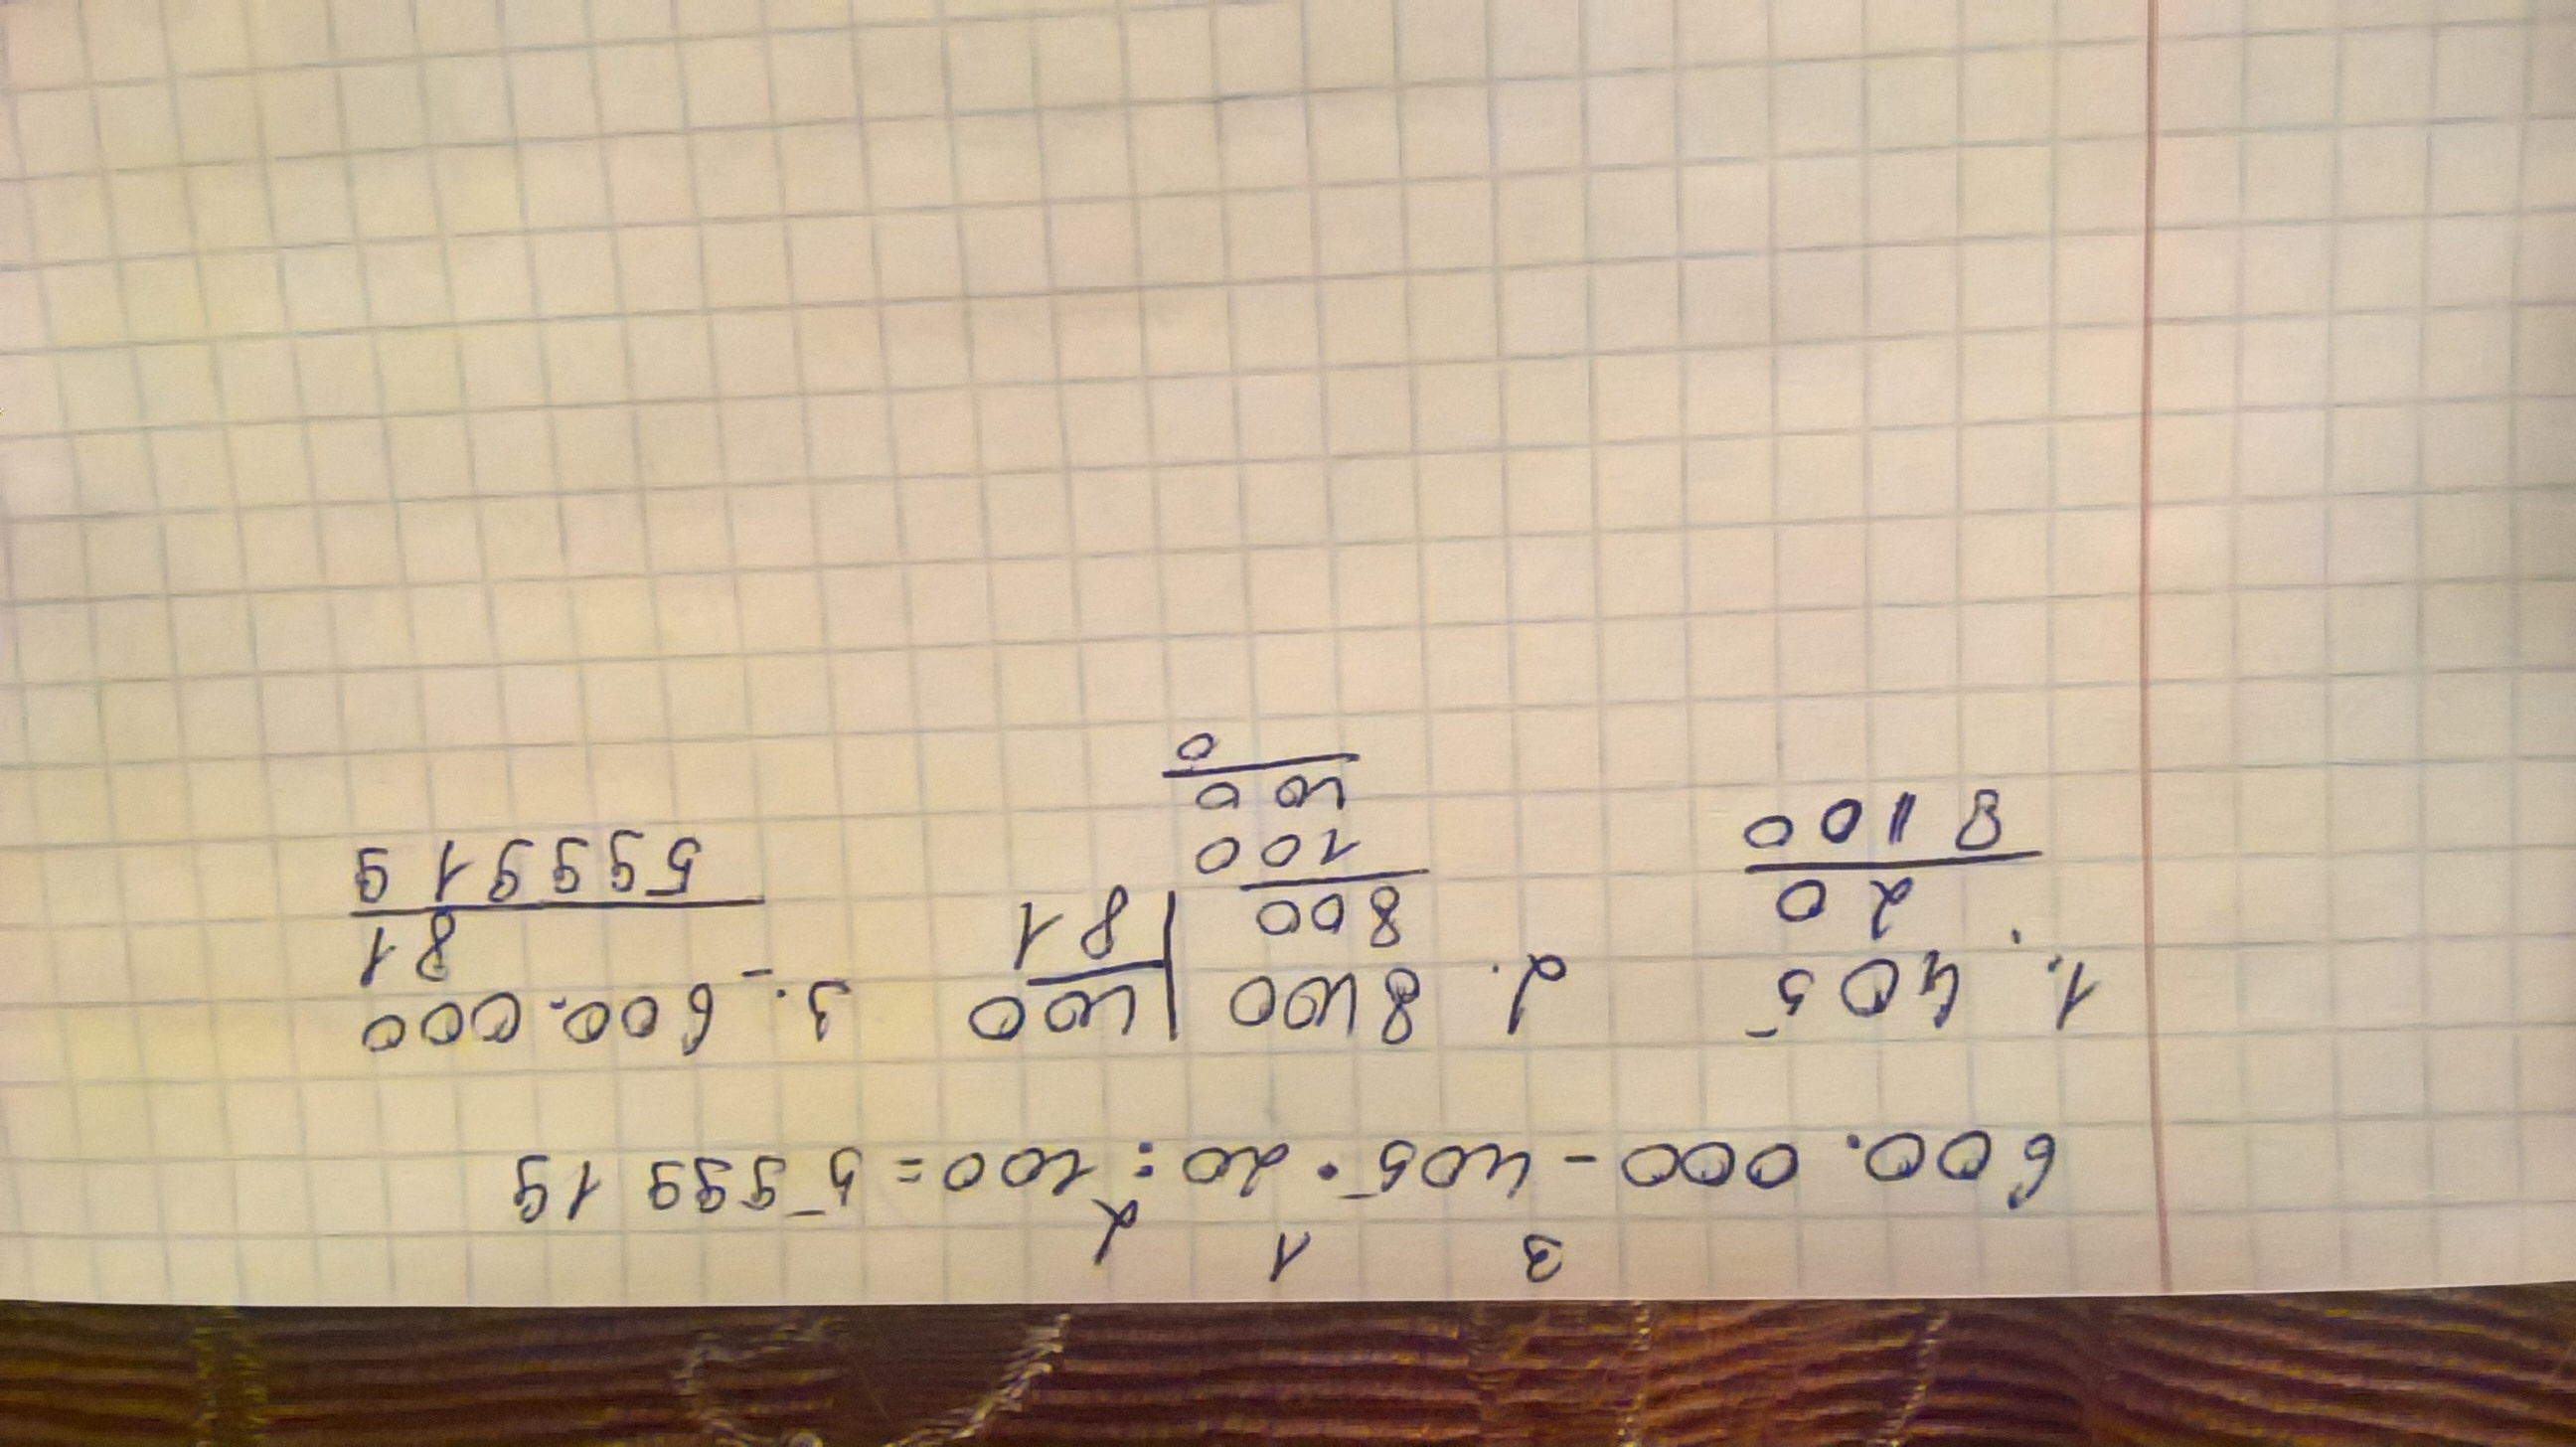 3 1 2
600.000 - 405 · 20 : 100 = 599919
1. 405 2. 8100 | 100 3. - 600.000
· 20 800 | 81 81
8100 100 599919
100
0